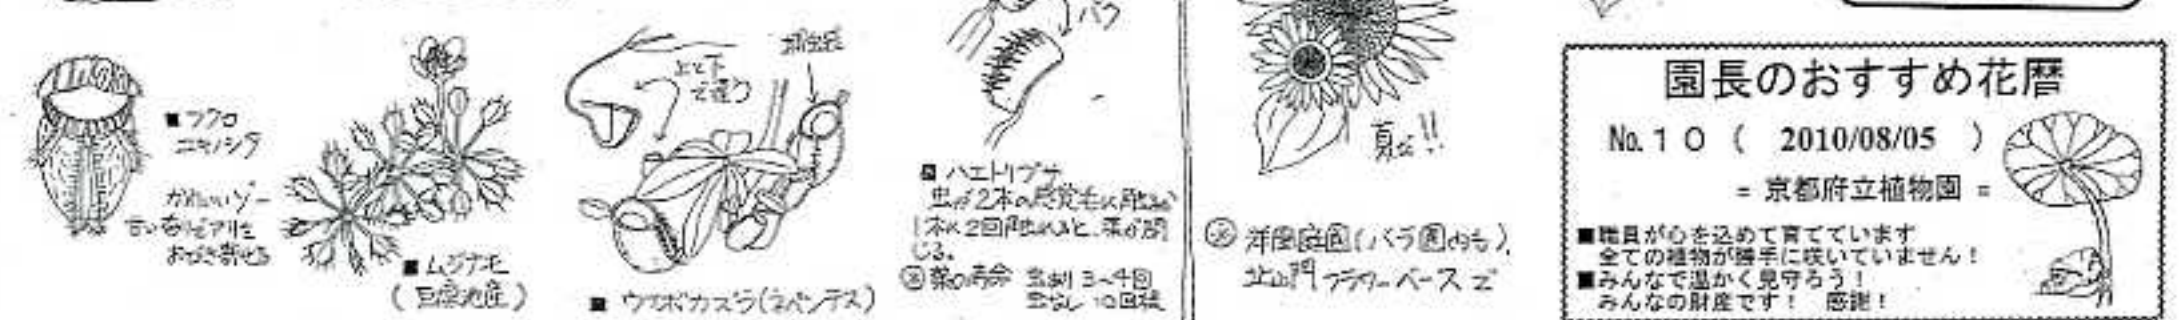 ■フクロ
ユキノシタ
かわいいゾー
甘い香りでアリを
おびき寄せる
■ムジナモ
(巨椋池産)
上と下
で違う
捕虫袋
■ウツボカズラ(ネペンテス)
パク
■ハエトリグサ
虫が2本の感覚毛に触れるか
1本に2回触れると、葉が閉
じる。
葉の寿命 虫あり 3~4回
虫なし 10回程
夏だ!!
洋風庭園(バラ園内も)、
北山門フラワーベースで
園長のおすすめ花暦
No.10 ( 2010/08/05 )
= 京都府立植物園 =
■職員が心を込めて育てています
全ての植物が勝手に咲いていません!
■みんなで温かく見守ろう!
みんなの財産です! 感謝!